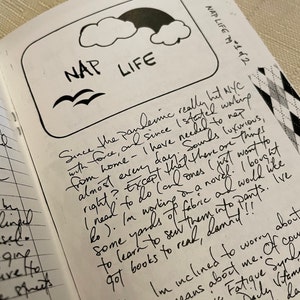 NAP LIFE
NAP LIFE № 1 & 2
Since the pandemic really hit NYC
with force, and since I started working
from home – I have needed to nap
almost every day. Sounds luxurious,
right? Except that there are things I
need to do (and ones I just want to
do). I'm working on a novel. I bought
some yards of fabric and would like
to learn to sew them into pants. I've
got books to read, dammit!!
I'm inclined to worry about
means about me. Of course
Fatigue Syndrome
Daily Vitamin